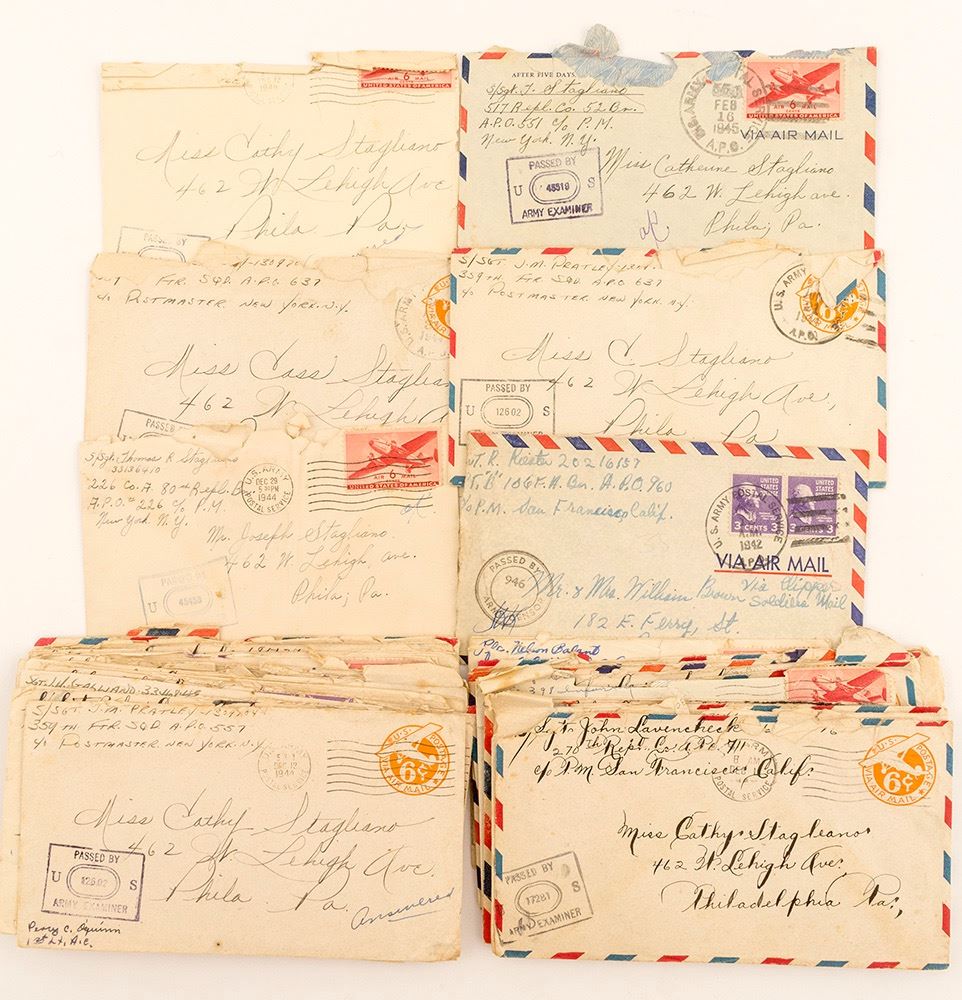 12
1944
AIR 6 MAIL
UNITED STATES OF AMERICA
Miss Cathy Stagliano
462 W. Lehigh Ave
Phila Pa.
PASSED BY
AFTER FIVE DAYS,
S/Sgt. T. Stagliano
517 Repl. Co. 52 Bn.
A.P.O. 551 c/o P.M.
New York. N.Y.
U.S. ARMY
FEB
16
1945
A.P.O.
AIR 6 MAIL
UNITED STATES OF AMERICA
VIA AIR MAIL
PASSED BY
U 45519 S
ARMY EXAMINER
Miss Catherine Stagliano
462 W. Lehigh ave.
Phila; Pa.
FTR. SQD. A.P.O. 637
c/o POSTMASTER NEW YORK. N.Y.
U.S. ARMY
VIA AIR MAIL
Miss Cass Staglia
462 W. Lehigh A
PASSED BY
S/SGT J.M. PRATLEY
359TH FTR SQD A.P.O. 637
c/o POSTMASTER NEW YORK, N.Y.
U.S. ARMY
A.P.O.
VIA AIR MAIL
Miss C. Stagliano
462 W Lehigh Ave,
Phila Pa
PASSED BY
U 12602 S
S/Sgt. Thomas R Stagliano
33136410
226 Co. A. 80th Repl. B
A.P.O. # 226 c/o P.M.
New York. N.Y.
U.S. ARMY
DEC 29
5 30PM
1944
POSTAL SERVICE
AIR 6 MAIL
UNITED STATES OF AMERICA
Mr. Joseph Stagliano
462 W. Lehigh ave.
Phila; Pa.
PASSED BY
U 45458 S
T. R. Riester 20216157
T. "B" 106 F.A. Bn. A.P.O. 960
c/o P.M. San Francisco Calif.
UNITED STATES POSTAGE
3 CENTS 3
UNITED STATES POSTAGE
3 CENTS 3
U.S. ARMY POSTAL SERVICE
1942
A.P.O.
VIA AIR MAIL
Via Clipper
Soldiers Mail
PASSED BY
946
ARMY CENSOR
Mr. & Mrs. William Brown
182 E. Ferry, St.
Pvc. Nelson Balant
S/SGT J.M. PRATLEY
359TH FTR SQD A.P.O. 557
c/o POSTMASTER NEW YORK. N.Y
DEC 12
1944
POSTAL SERVICE
U.S. POSTAGE
6¢
VIA AIR MAIL
Miss Cathy Stagliano
462 W. Lehigh Ave.
Phila Pa.
Answered
PASSED BY
U 12602 S
ARMY EXAMINER
1st Lt, A.C.
398
16
Sgt John Lavencheck
270th Repl. Co. A.P.O. 711
c/o P.M San Francisco Calif.
ARMY
POSTAL SERVICE
U.S. POSTAGE
6¢
VIA AIR MAIL
Miss Cathy Stagleano
462 W. Lehigh Ave.
Philadelphia Pa.,
PASSED BY
U 17281 S
ARMY EXAMINER